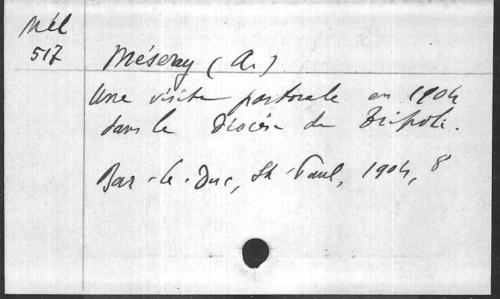 Mél
517
Méseray (A.)
Une visite pastorale en 1904
dans le Diocèse de Tripoli.
Bar-le-Duc, St-Paul, 1904, 8°